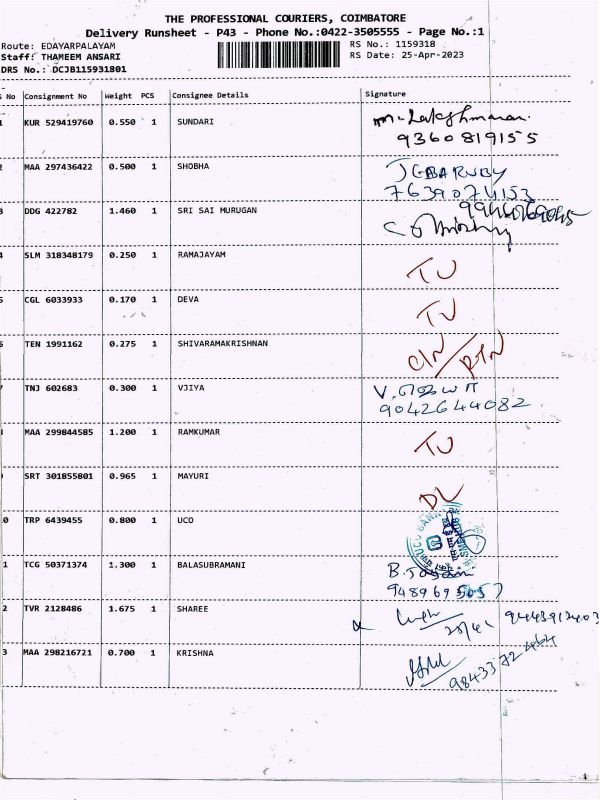 THE PROFESSIONAL COURIERS, COIMBATORE
Delivery Runsheet - P43 - Phone No.:0422-3505555 - Page No.:1
Route: EDAYARPALAYAM RS No.: 1159318
Staff: THAMEEM ANSARI RS Date: 25-Apr-2023
DRS No.: DCJB115931801
No Consignment No Weight PCS Consignee Details Signature
1 KUR 529419760 0.550 1 SUNDARI m. Lakshmanan
9360819155
2 MAA 297436422 0.500 1 SHOBHA
7639074153
3 DDG 422782 1.460 1 SRI SAI MURUGAN
4 SLM 318348179 0.250 1 RAMAJAYAM TU
5 CGL 6033933 0.170 1 DEVA TU
6 TEN 1991162 0.275 1 SHIVARAMAKRISHNAN CIN/RTN
7 TNJ 602683 0.300 1 VJIYA
9042644082
8 MAA 299844585 1.200 1 RAMKUMAR TU
SRT 301855801 0.965 1 MAYURI DL
0 TRP 6439455 0.800 1 UCO UCO BANK
1 TCG 50371374 1.300 1 BALASUBRAMANI
2 TVR 2128486 1.675 1 SHAREE
3 MAA 298216721 0.700 1 KRISHNA
1